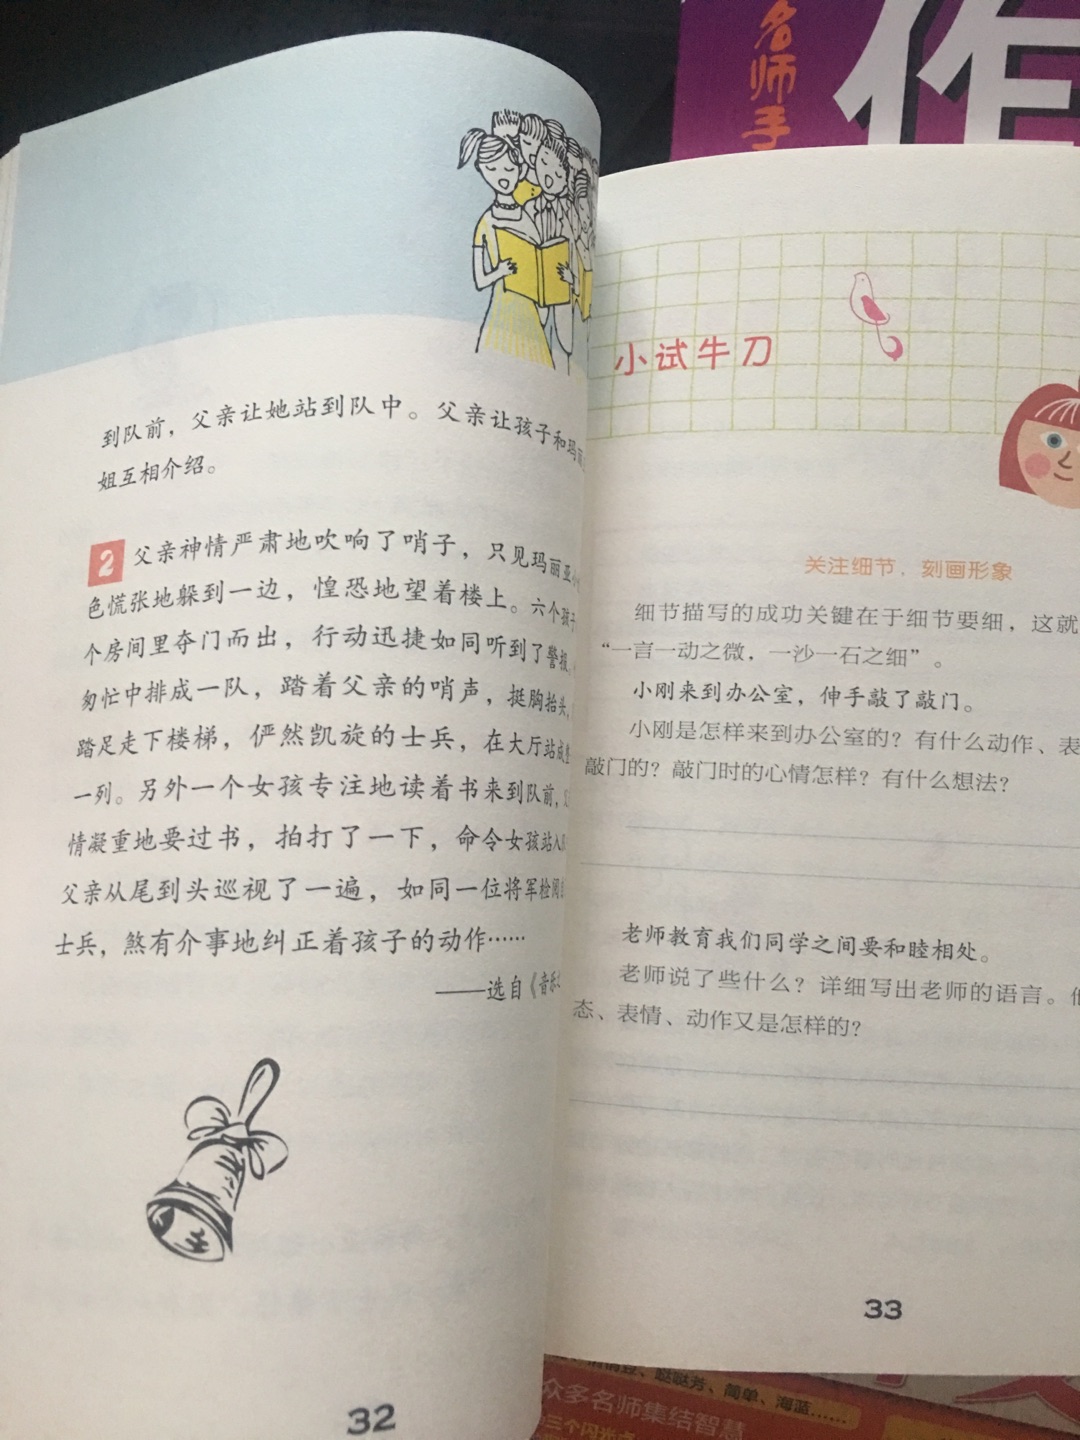 到队前，父亲让她站到队中。父亲让孩子和玛丽
姐互相介绍。
2 父亲神情严肃地吹响了哨子，只见玛丽亚小
色慌张地躲到一边，惶恐地望着楼上。六个孩子
个房间里夺门而出，行动迅捷如同听到了警报，
匆忙中排成一队，踏着父亲的哨声，挺胸抬头，
踏足走下楼梯，俨然凯旋的士兵，在大厅站成整
一列。另外一个女孩专注地读着书来到队前，父
情凝重地要过书，拍打了一下，命令女孩站入队
父亲从尾到头巡视了一遍，如同一位将军检阅
士兵，煞有介事地纠正着孩子的动作……
——选自《音乐
32
名师手
作
小试牛刀
关注细节，刻画形象
细节描写的成功关键在于细节要细，这就
“一言一动之微，一沙一石之细”。
小刚来到办公室，伸手敲了敲门。
小刚是怎样来到办公室的？有什么动作、表
敲门的？敲门时的心情怎样？有什么想法？
老师教育我们同学之间要和睦相处。
老师说了些什么？详细写出老师的语言。他
态、表情、动作又是怎样的？
33
哒哒芳、简单、海蓝……
众多名师集结智慧
三个闪光点